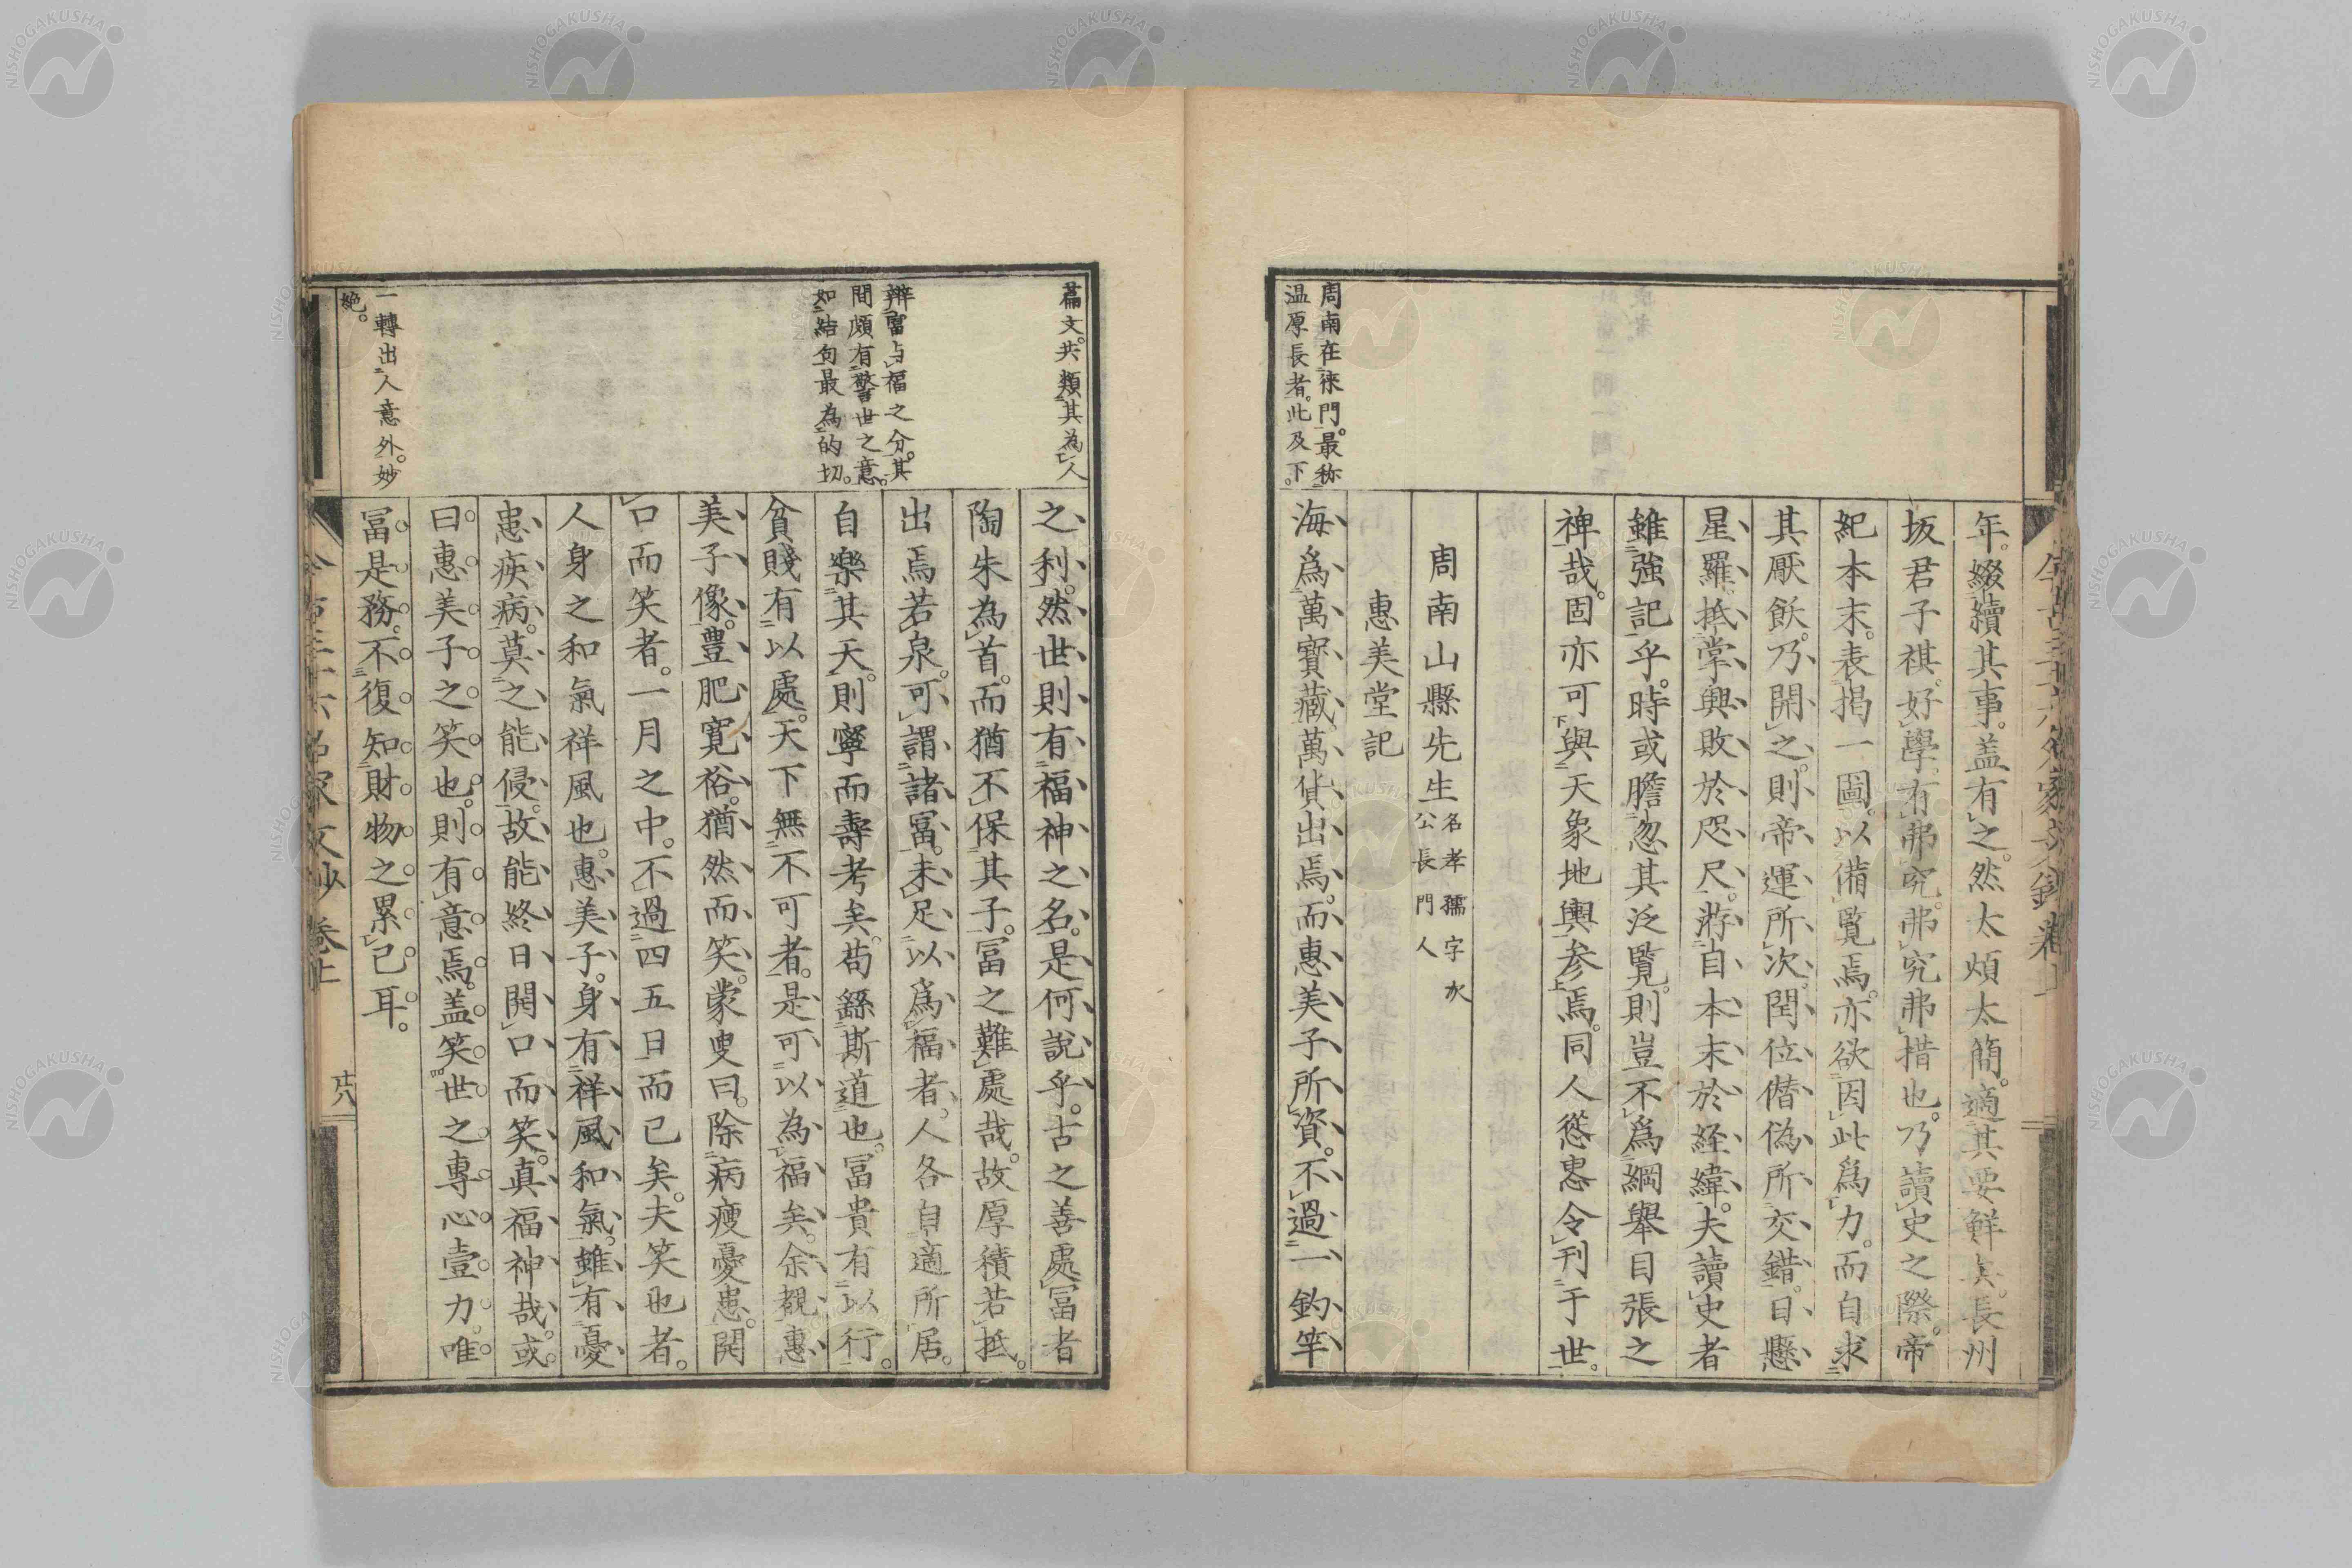 年。綴續其事。盖有之。然太煩太簡。適其要鮮矣。長州
坂君子祺。好學。有弗究。弗究弗措也。乃讀史之際。帝
紀本末。表揭一圖。以備覽焉。亦欲因此爲力。而自求
其厭飫。乃開之。則帝運所次。閏位僭偽所交錯。日懸
星羅。抵掌興敗於咫尺。游自本末於經緯。夫讀史者
雖強記乎。時或膽忽其泛覽。則豈不爲綱舉目張之
裨哉。固亦可與天象地輿參焉。同人慫恿令刊于世。
周南山縣先生
名孝孺字次
公長門人
惠美堂記
周南在徠門。最称
温厚長者。此及下。
海爲萬寳藏。萬貨出焉。而惠美子所資。不過一釣竿
篇文。共類其為人
之利。然世則有福神之名。是何説乎。古之善處冨者
陶朱為首。而猶不保其子。冨之難處哉。故厚積若抵。
出焉若泉。可謂諸冨。未足以爲福者。人各自適所居。
辨冨与福之分。其
間頗有警世之意。
如結句最為的切。
自樂其天。則寧而壽考矣。苟繇斯道也。冨貴有以行。
貧賤有以處。天下無不可者。是可以為福矣。余覩惠
美子像。豊肥寛裕。猶然而笑。蒙叟曰。除病瘦憂患。開
口而笑者。一月之中。不過四五日而已矣。夫笑也者。
人身之和氣祥風也。惠美子。身有祥風和氣。雖有憂
患疾病。莫之能侵。故能終日開口而笑。真福神哉。或
曰。惠美子之笑也。則有意焉。盖笑世之專心壹力。唯
一轉出人意外。妙
絶。
冨是務。不復知財物之累己耳。